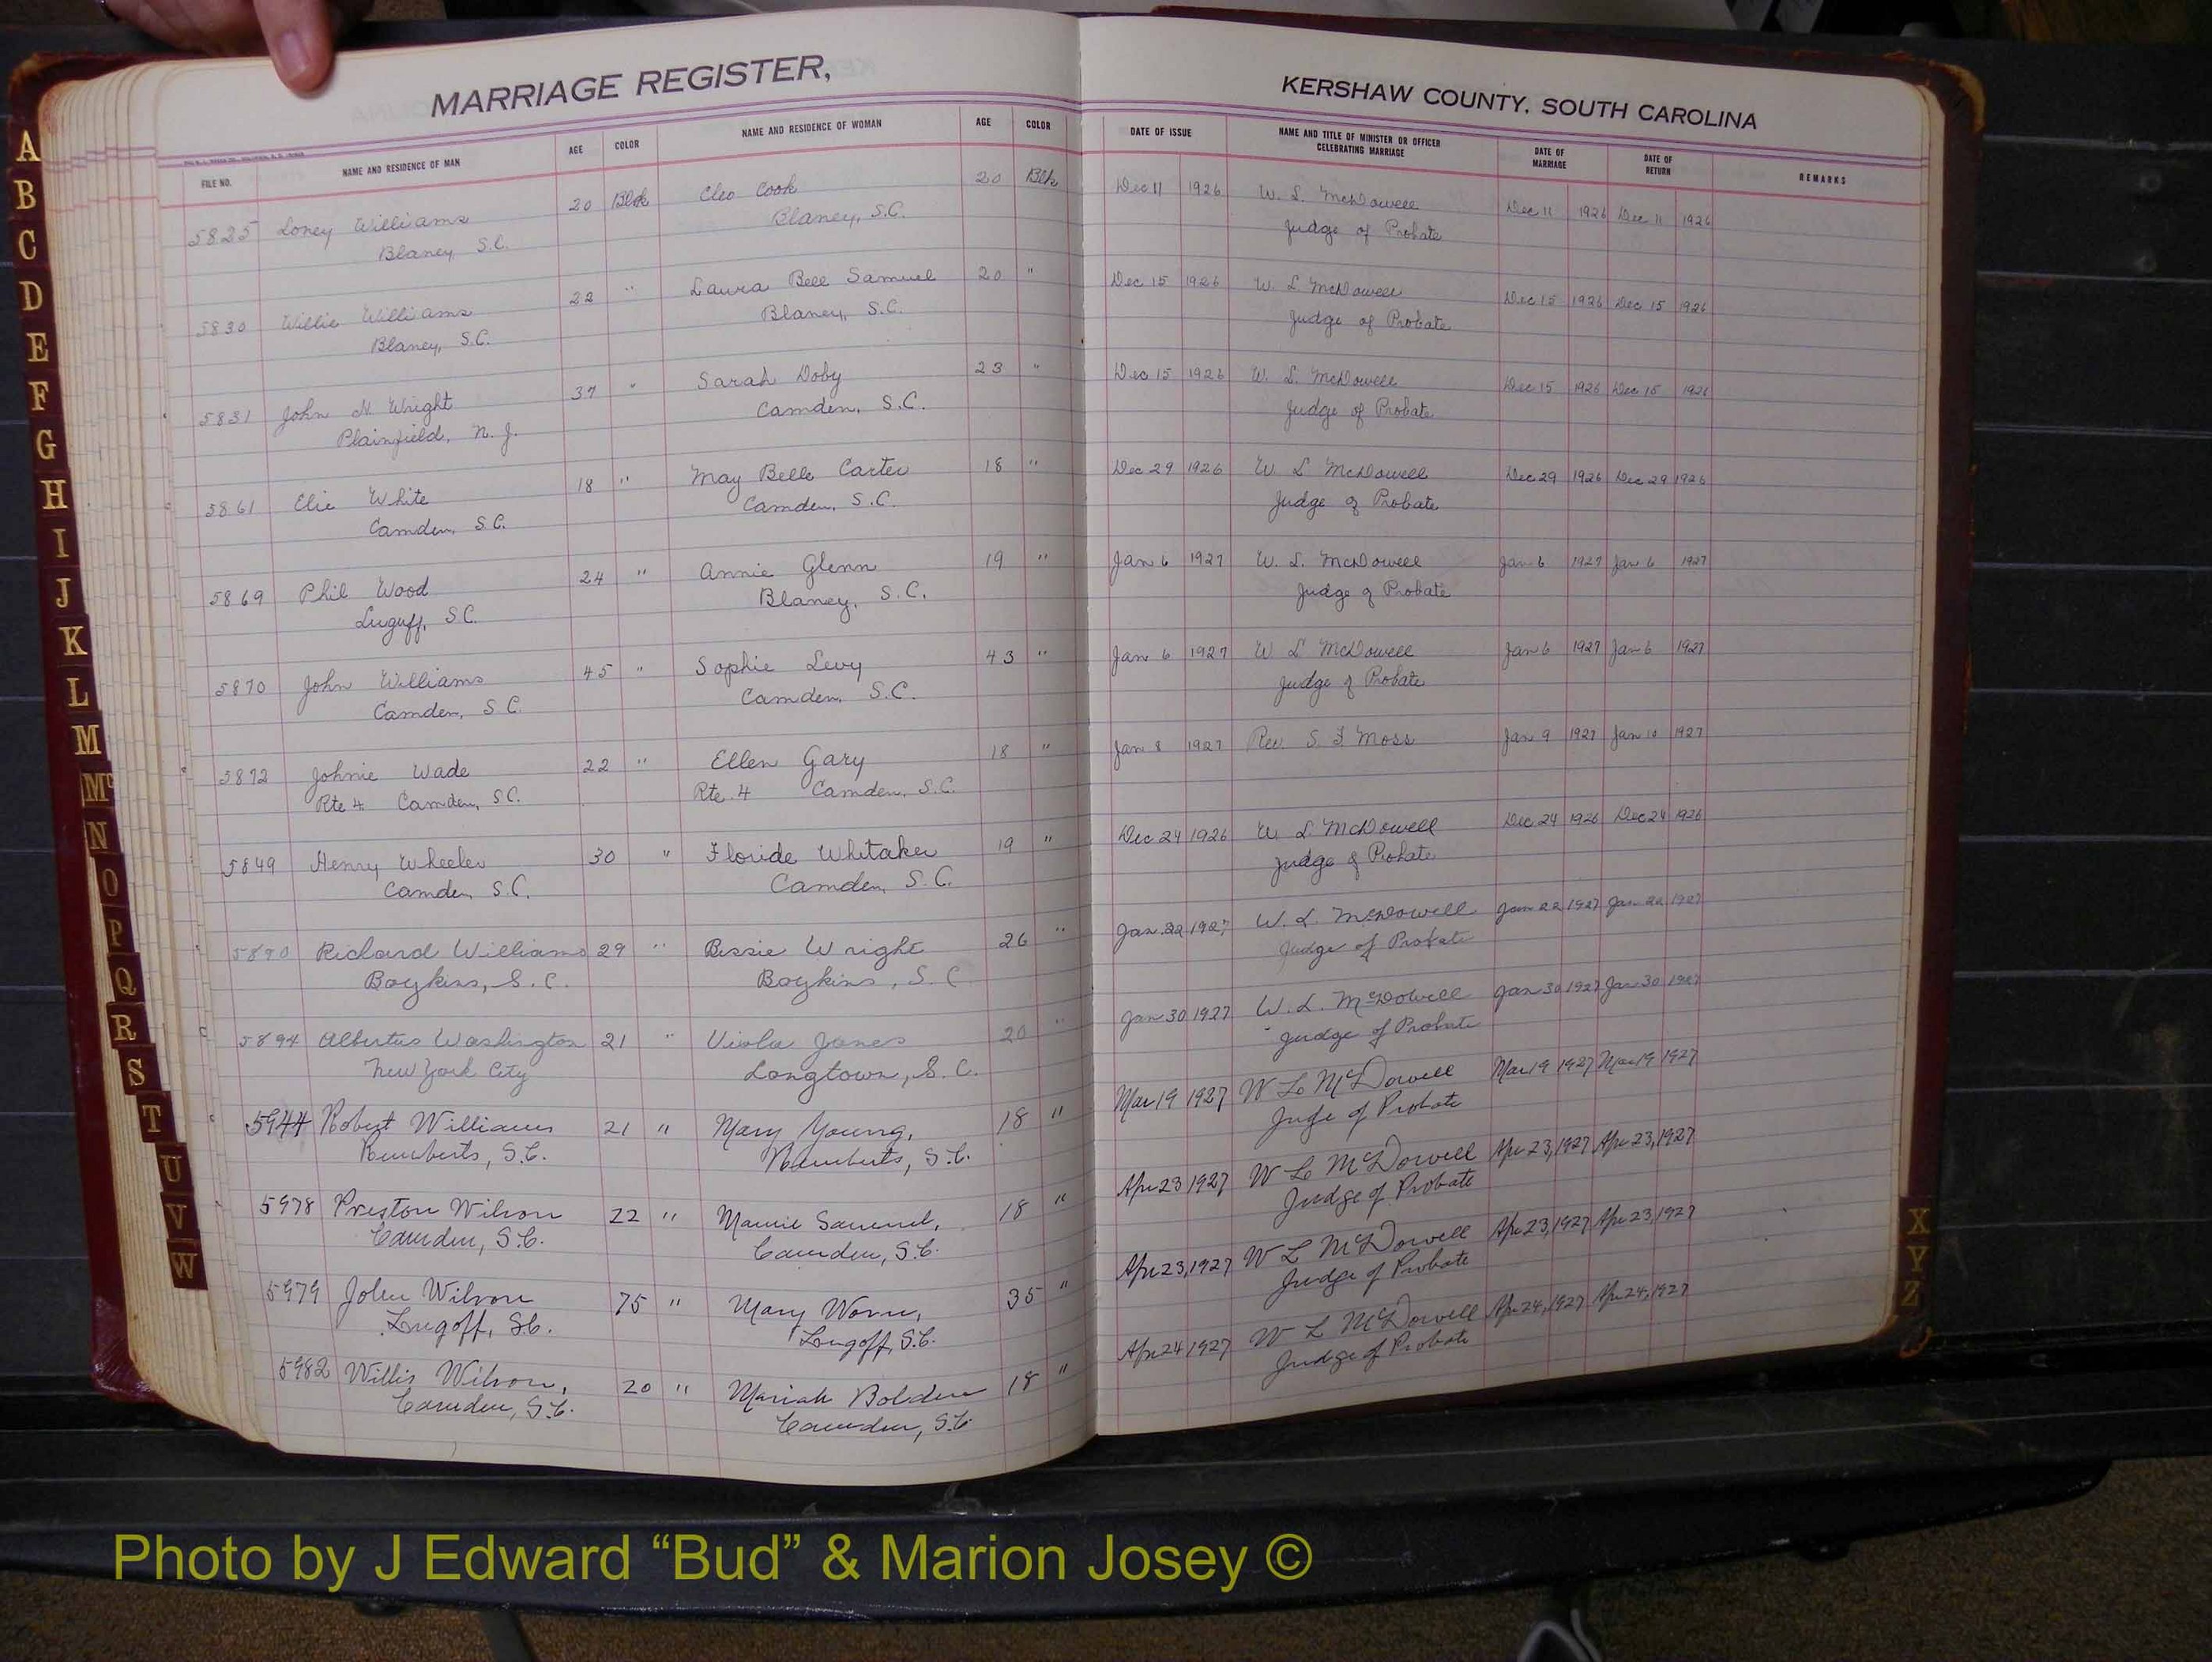 MARRIAGE REGISTER,
KERSHAW COUNTY, SOUTH CAROLINA
FILE NO. NAME AND RESIDENCE OF MAN AGE COLOR NAME AND RESIDENCE OF WOMAN AGE COLOR DATE OF ISSUE NAME AND TITLE OF MINISTER OR OFFICER CELEBRATING MARRIAGE DATE OF MARRIAGE DATE OF RETURN REMARKS
5825 Loney Williams 20 Blck Cleo Cook 20 Blk Dec 11 1926 W. L. McDowell Dec 11 1926 Dec 11 1926
Blaney S.C. Blaney, S.C. Judge of Probate
5830 Willie Williams 22 " Laura Bell Samuel 20 " Dec 15 1926 W. L McDowell Dec 15 1926 Dec 15 1926
Blaney, S.C. Blaney, S.C. Judge of Probate
5831 John N. Wright 37 " Sarah Doby 23 " Dec 15 1926 W. L. McDowell Dec 15 1926 Dec 15 1926
Plainfield, N.J. Camden, S.C. Judge of Probate
5861 Elie White 18 " May Belle Carter 18 " Dec 29 1926 W. L McDowell Dec 29 1926 Dec 29 1926
Camden, S.C. Camden, S.C. Judge of Probate
5869 Phil Wood 24 " Annie Glenn 19 " Jan 6 1927 W. L. McDowell Jan 6 1927 Jan 6 1927
Lugoff, S.C. Blaney, S.C. Judge of Probate
5870 John Williams 45 " Sophie Levy 43 " Jan 6 1927 W L McDowell Jan 6 1927 Jan 6 1927
Camden, S.C. Camden, S.C. Judge of Probate
5872 Johnie Wade 22 " Ellen Gary 18 " Jan 8 1927 Rev. S. F. Moss Jan 9 1927 Jan 10 1927
Rte 4 Camden, S.C. Rte. 4 Camden, S.C.
5849 Henry Wheeler 30 " Floride Whitaker 19 " Dec 24 1926 W L McDowell Dec 24 1926 Dec 24 1926
Camden, S.C. Camden, S.C. Judge of Probate
5890 Richard Williams 29 " Bessie Wright 26 " Jan. 22 1927 W. L. McDowell Jan 22 1927 Jan 22 1927
Boykins, S.C. Boykins, S.C Judge of Probate
5894 Albertus Washington 21 " Viola Jones 20 " Jan 30 1927 W. L. McDowell Jan 30 1927 Jan 30 1927
New York City Longtown, S.C. Judge of Probate
5944 Robert Williams 21 " Mary Young, 18 " Mar 19 1927 W L McDowell Mar 19 1927 Mar 19 1927
Remberts, S.C. Remberts, S.C. Juge of Probate
5978 Preston Wilson 22 " Mamie Samuel, 18 " Apr 23 1927 W L McDowell Apr 23, 1927 Apr 23, 1927
Camden, S.C. Camden, S.C. Judge of Probate
5979 John Wilson 75 " Mary 35 " Apr 23, 1927 W L McDowell Apr 23, 1927 Apr 23, 1927
Lugoff, S.C. Lugoff, S.C. Judge of Probate
5982 Willis Wilson, 20 " Mariah Bolden 18 " Apr 24 1927 W L McDowell Apr 24, 1927 Apr 24, 1927
Camden, S.C. Camden, S.C Judge of Probate
A
B
C
D
E
F
G
H
I
J
K
L
M
Mc
N
O
P
Q
R
S
T
U
V
W
X
Y
Z
Photo by J Edward “Bud” & Marion Josey ©